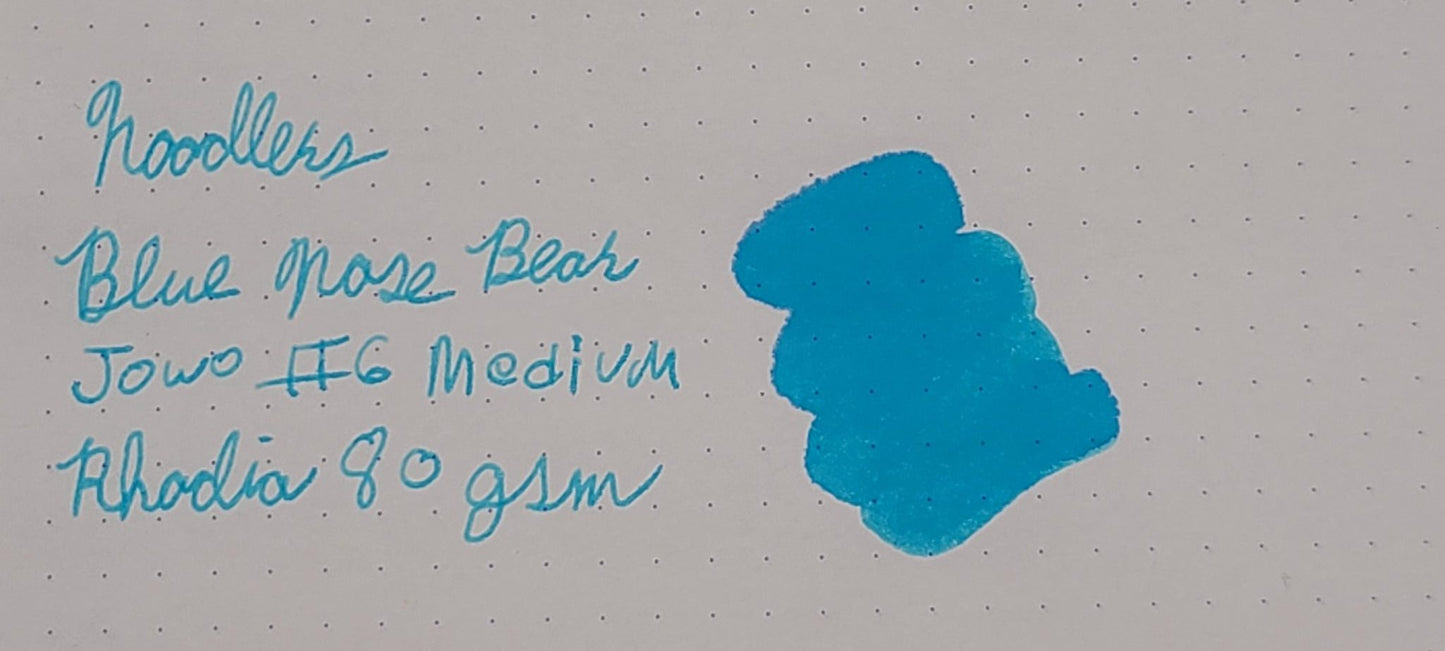 Noodlers
Blue Nose Bear
Jowo #6 Medium
Rhodia 80 gsm